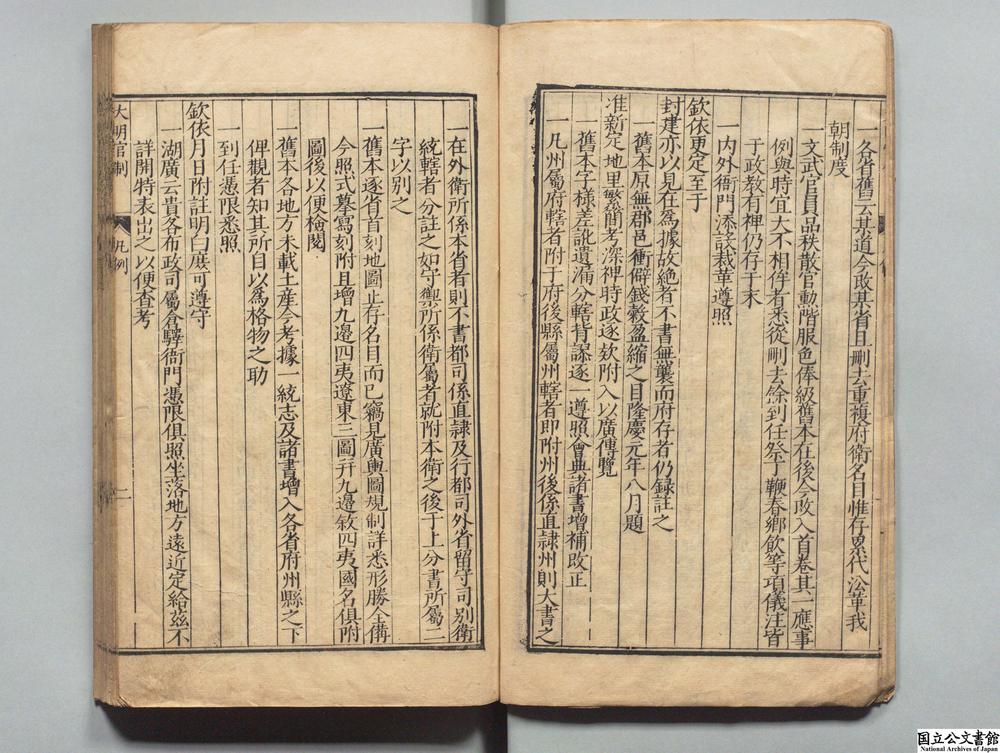 一各省舊云某道今改某省且刪去重複府衛名目惟存累代沿革我
朝制度
一文武官員品秩散官勳階服色俸級舊本在後今改入首卷其一應事
例與時宜大不相侔者悉從刪去餘到任祭丁鞭春鄉飲等項儀注皆
于政教有裨仍存于末
一內外衙門添設裁革遵照
欽依更定至于
封建亦以見在為據故絶者不書無襲而府存者仍録註之
一舊本原無郡邑衝僻錢穀盈縮之目隆慶元年八月題
准新定地里繁簡考深裨時政逐欵附入以廣傳覽
一舊本字樣差訛遺漏分轄背謬逐一遵照會典諸書增補改正
一凡州屬府轄者附于府後縣屬州轄者即附州後係直隷州則大書之
一在外衛所係本省者則不書都司係直隷及行都司外省留守司別衛
統轄者分註之如守禦所係衛屬者就附本衛之後于上分書所屬二
字以別之
一舊本逐省首刻地圖止存名目而已竊見廣輿圖規制詳悉形勝全備
今照式摹寫刻附且增九邊四夷遼東三圖幷九邊敘四夷國名俱附
圖後以便檢閱
一舊本各地方未載土産今考據一統志及諸書增入各省府州縣之下
俾觀者知其所自以為格物之助
一到任憑限悉照
欽依月日附註明白庶可遵守
一湖廣云貴各布政司屬倉驛衙門憑限俱照坐落地方遠近定給茲不
詳開特表出之以便查考
大明官制 凡例 二
国立公文書館
National Archives of Japan